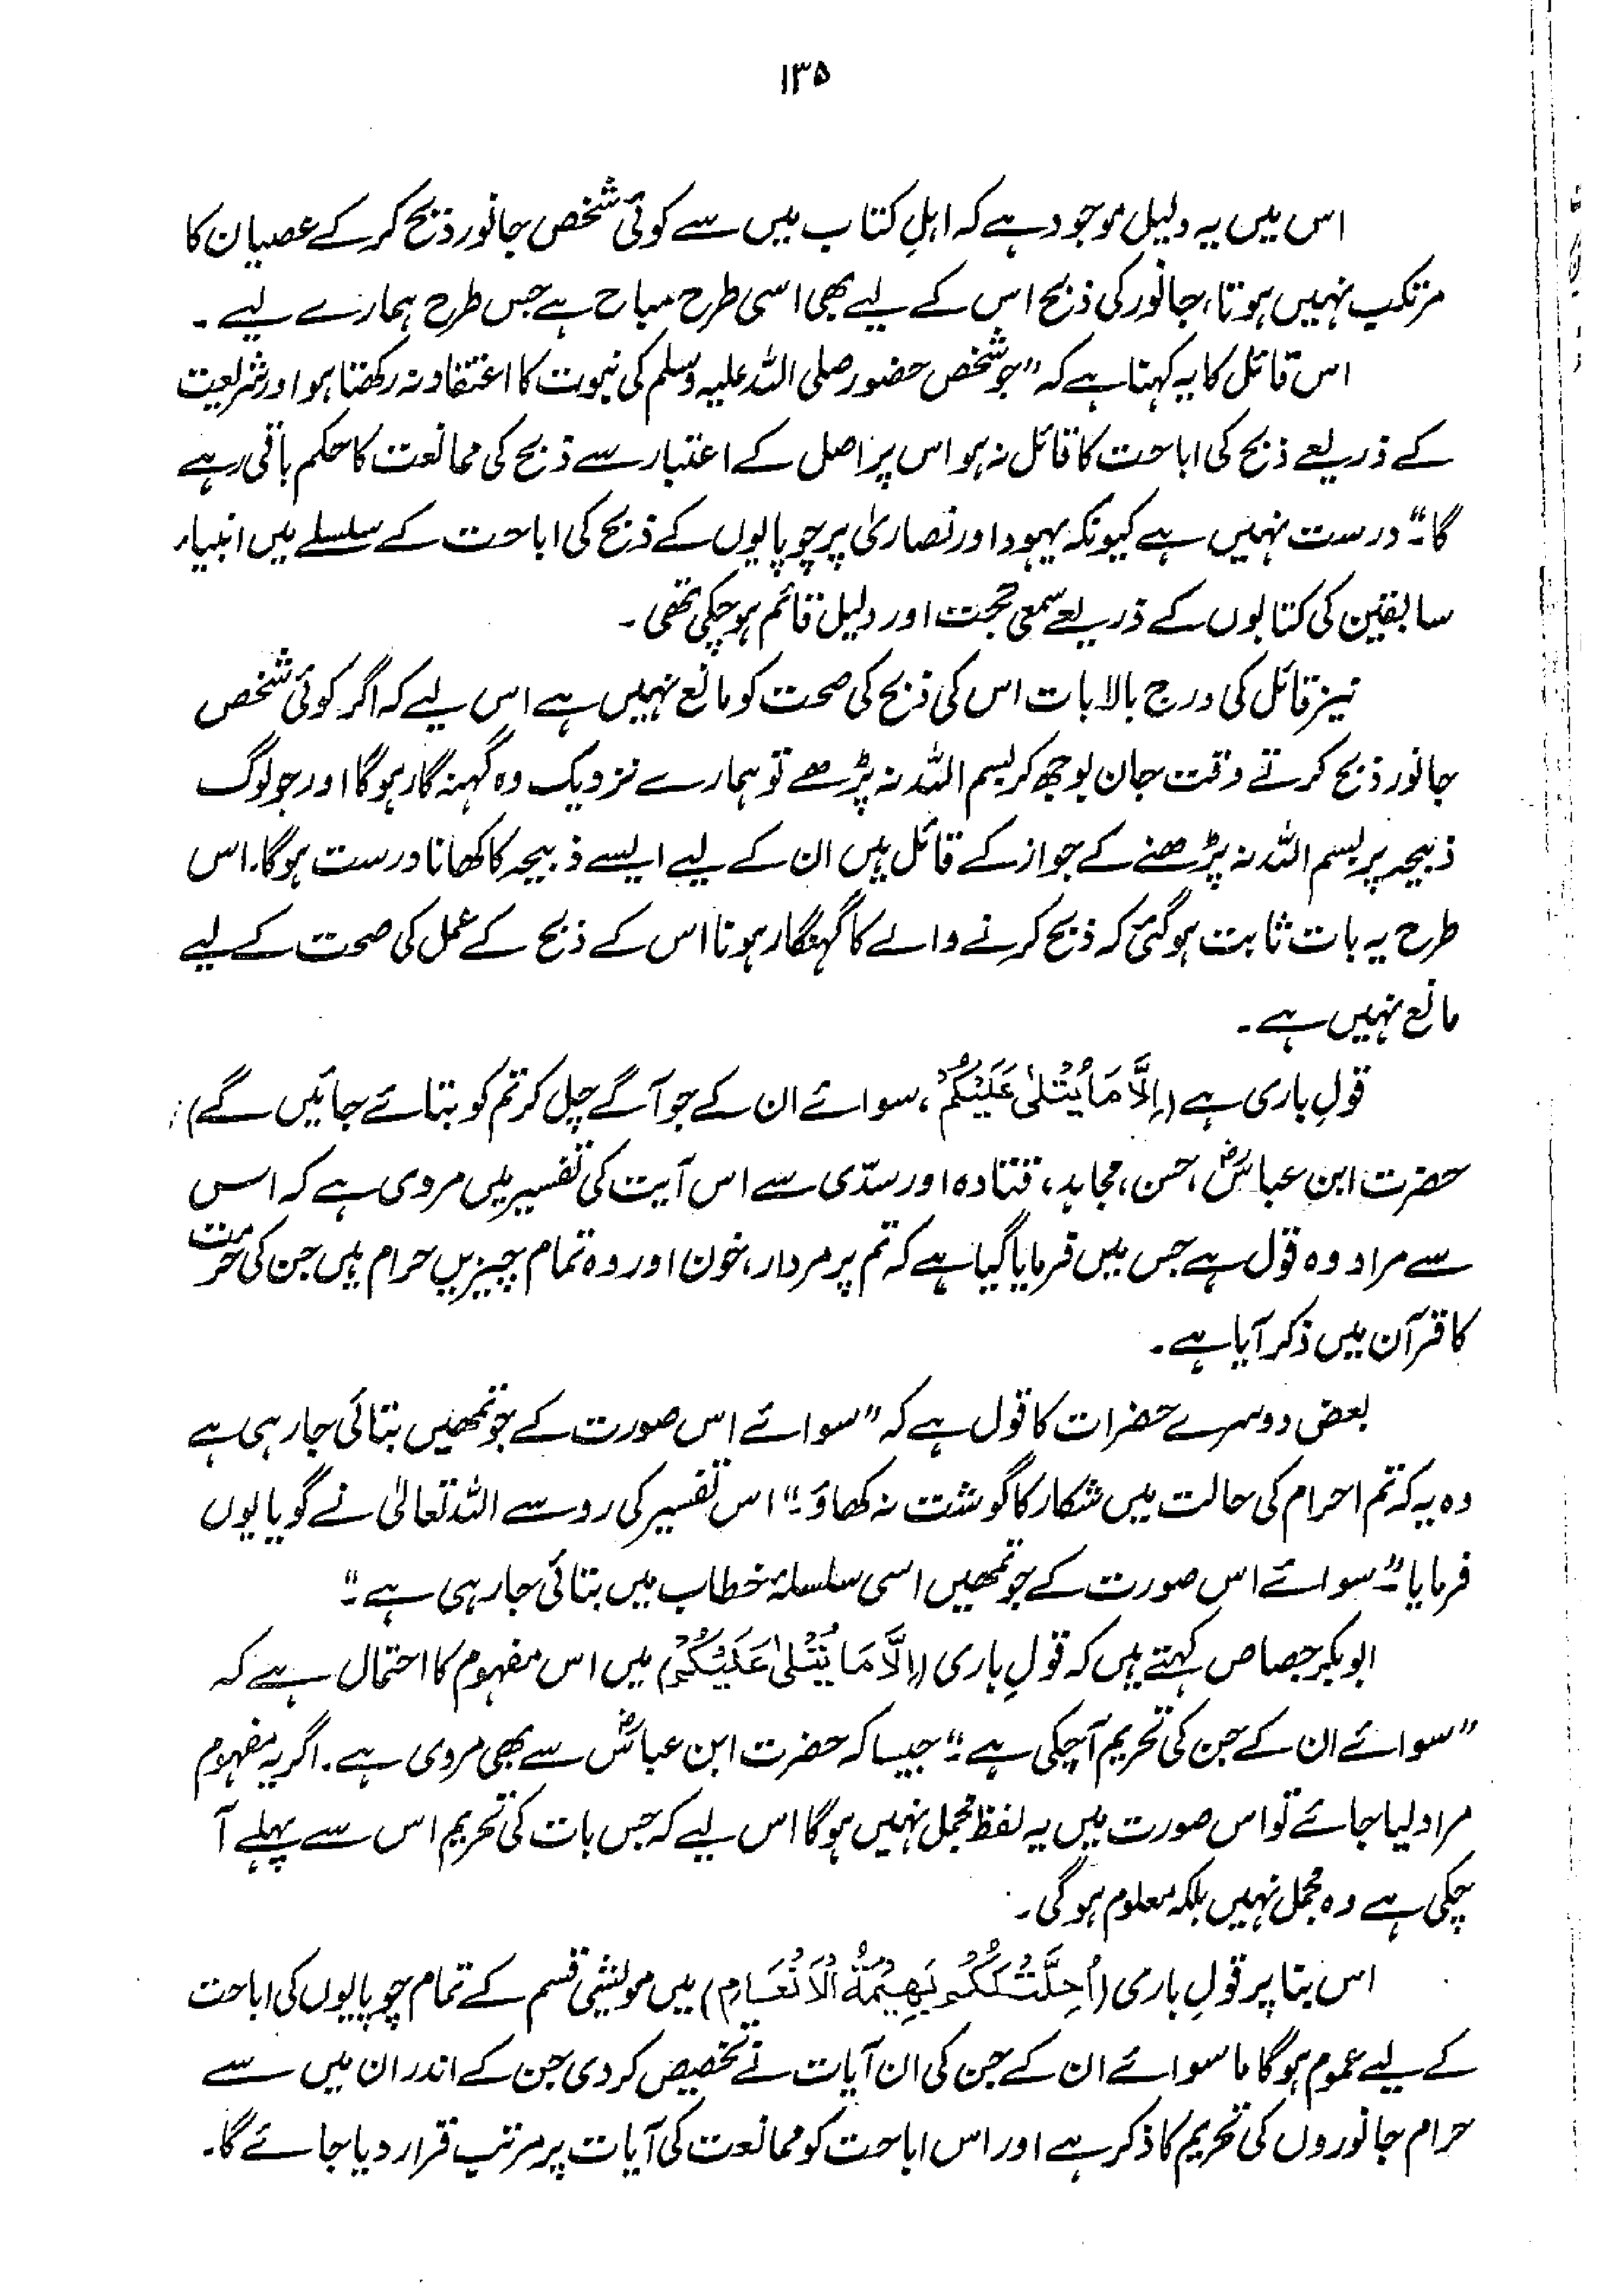 ۱۳۵
اس میں یہ دلیل موجود ہے کہ اہلِ کتاب میں سے کوئی شخص جانور ذبح کر کے عصیان کا
مرتکب نہیں ہوتا، جانور کی ذبح اس کے لیے بھی اسی طرح مباح ہے جس طرح ہمارے لیے ۔
اس قائل کا یہ کہنا ہے کہ "جو شخص حضور صلی اللہ علیہ وسلم کی نبوت کا اعتقاد نہ رکھتا ہو اور شریعت
کے ذریعے ذبح کی اباحت کا قائل نہ ہو اس پر اصل کے اعتبار سے ذبح کی ممانعت کا حکم باقی رہے
گا۔" درست نہیں ہے کیونکہ یہود اور نصاریٰ پر چوپایوں کے ذبح کی اباحت کے سلسلے میں انبیاء
سابقین کی کتابوں کے ذریعے سمعی حجت اور دلیل قائم ہو چکی تھی ۔
نیز قائل کی درج بالا بات اس کی ذبح کی صحت کو مانع نہیں ہے اس لیے کہ اگر کوئی شخص
جانور ذبح کرتے وقت جان بوجھ کر بسم اللہ نہ پڑھے تو ہمارے نزدیک وہ گہنہگار ہوگا اور جو لوگ
ذبیحہ پر بسم اللہ نہ پڑھنے کے جواز کے قائل ہیں ان کے لیے ایسے ذبیحہ کا کھانا درست ہوگا۔ اس
طرح یہ بات ثابت ہوگئی کہ ذبح کرنے والے کا گہنگار ہونا اس کے ذبح کے عمل کی صحت کے لیے
مانع نہیں ہے ۔
قولِ باری ہے (اِلَّا مَا یُتْلٰی عَلَیْکُمْ، سوائے ان کے جو آگے چل کر تم کو بتائے جائیں گے)
حضرت ابن عباسؓ، حسن، مجاہد، قتادہ اور سدّی سے اس آیت کی تفسیر میں مروی ہے کہ اس
سے مراد وہ قول ہے جس میں فرمایا گیا ہے کہ تم پر مردار، خون اور وہ تمام چیزیں حرام ہیں جن کی حرمت
کا قرآن میں ذکر آیا ہے ۔
بعض دوسرے حضرات کا قول ہے کہ "سوائے اس صورت کے جو تمھیں بتائی جا رہی ہے
وہ یہ کہ تم احرام کی حالت میں شکار کا گوشت نہ کھاؤ۔" اس تفسیر کی رو سے اللہ تعالیٰ نے گویا یوں
فرمایا۔ "سوائے اس صورت کے جو تمھیں اسی سلسلۂ خطاب میں بتائی جا رہی ہے۔"
ابوبکر جصاص کہتے ہیں کہ قولِ باری (اِلَّا مَا یُتْلٰی عَلَیْکُمْ) میں اس مفہوم کا احتمال ہے کہ
"سوائے ان کے جن کی تحریم آچکی ہے۔" جیسا کہ حضرت ابن عباسؓ سے بھی مروی ہے ۔ اگر یہ مفہوم
مراد لیا جائے تو اس صورت میں یہ لفظ مجمل نہیں ہوگا اس لیے کہ جس بات کی تحریم اس سے پہلے آ
چکی ہے وہ مجمل نہیں بلکہ معلوم ہوگی ۔
اس بنا پر قولِ باری (اُحِلَّتْ لَکُمْ بَهِیْمَةُ الْاَنْعَامِ) میں مویشی قسم کے تمام چوپایوں کی اباحت
کے لیے عموم ہوگا ما سوائے ان کے جن کی ان آیات نے تخصیص کر دی جن کے اندر ان میں سے
حرام جانوروں کی تحریم کا ذکر ہے اور اس اباحت کو ممانعت کی آیات پر مرتب قرار دیا جائے گا۔